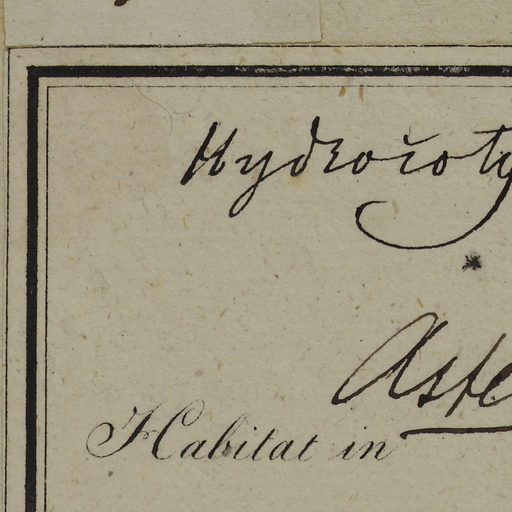 Hydrocoty
*
Aste
Habitat in